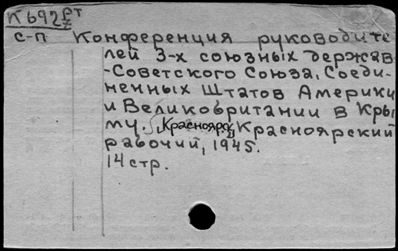 К692 рт
с-п Конференция руководите
лей 3-х союзных держав
-Советского Союза, Соеди-
ненных Штатов Америки
и Великобритании в Кры
му. Красноярск, Красноярский
рабочий, 1945.
14 стр.